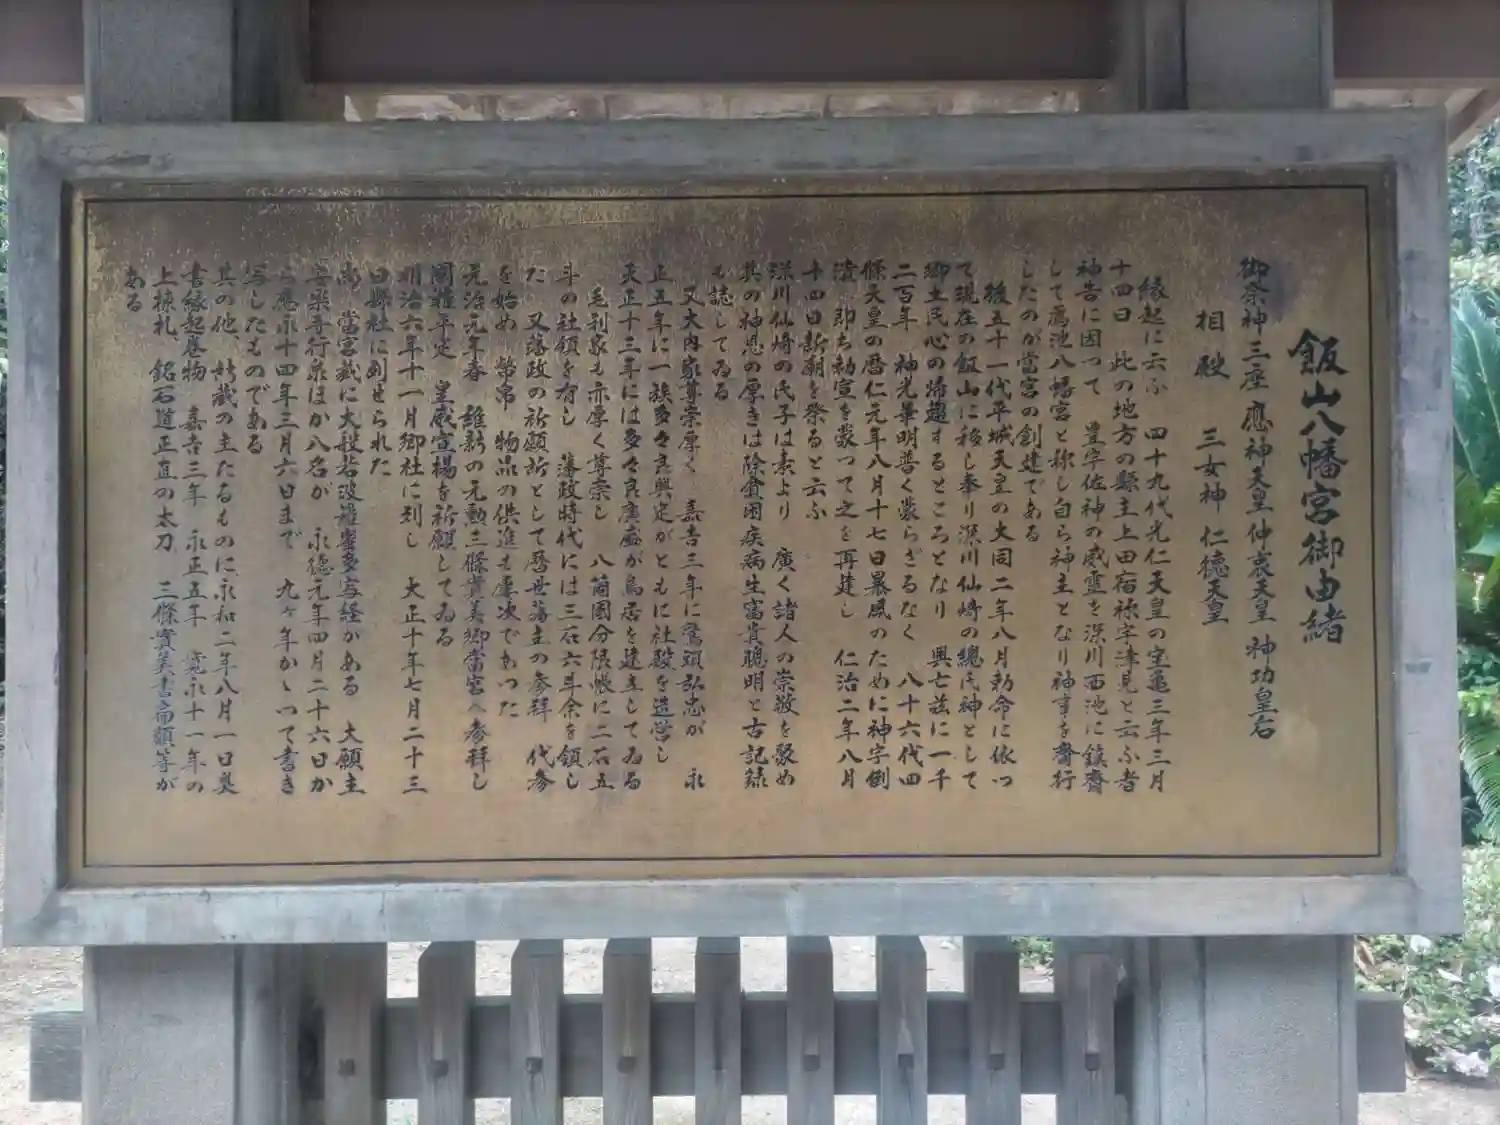 飯山八幡宮御由緒
御祭神三座 應神天皇 仲哀天皇 神功皇后
相殿 三女神 仁徳天皇
縁起に云ふ 四十九代光仁天皇の宝亀三年三月
十四日 此の地方の縣主上田宿祢宇津見と云ふ者
神告に因つて 豊宇佐神の威霊を深川西池に鎮齋
して鳫池八幡宮と称し自ら神主となり神事を齊行
したのが當宮の創建である
後五十一代平城天皇の大同二年八月勅命に依つ
て現在の飯山に移し奉り深川仙崎の總氏神として
郷土民心の帰趨するところとなり 興七茲に一千
二百年 神光華明普く蒙らざるなく 八十六代四
條天皇の暦仁元年八月十七日暴風のために神宇倒
潰 即ち勅宣を蒙つて之を再建し 仁治二年八月
十四日新廟を祭ると云ふ
深川仙崎の氏子は素より 廣く諸人の崇敬を聚め
其の神恩の厚きは除貧困疾病生富貴聰明と古記録
も誌してゐる
又大内家尊崇厚く 嘉吉三年に鷲頭弘忠が 永
正五年に一族多々良興定がともに社殿を造営し
天正十三年には多々良廣盛が鳥居を建立してゐる
毛利家も亦厚く尊崇し 八箇國分限帳に二石五
斗の社領を有し 藩政時代には三石六斗余を領し
た 又藩政の祈願所として暦世藩主の参拜 代参
を始め 幣帛 物品の供進も屢次であつた
元治元年春 維新の元勲三條實美卿當宮へ参拜し
國難平定 皇威宣揚を祈願してゐる
明治六年十一月郷社に列し 大正十年七月二十三
日縣社に列せられた
尚 當宮蔵に大般若波羅蜜多宻経がある 大願主
安楽寺行泉ほか八名が 永徳元年四月二十六日か
ら應永十四年三月六日まで 九ヶ年かゝつて書き
写したものである
其の他 所蔵の主たるものに永和二年八月一日奥
書縁起巻物 嘉吉三年 永正五年 寛永十一年の
上棟札 銘石道正直の太刀 三條實美書扁額等が
ある